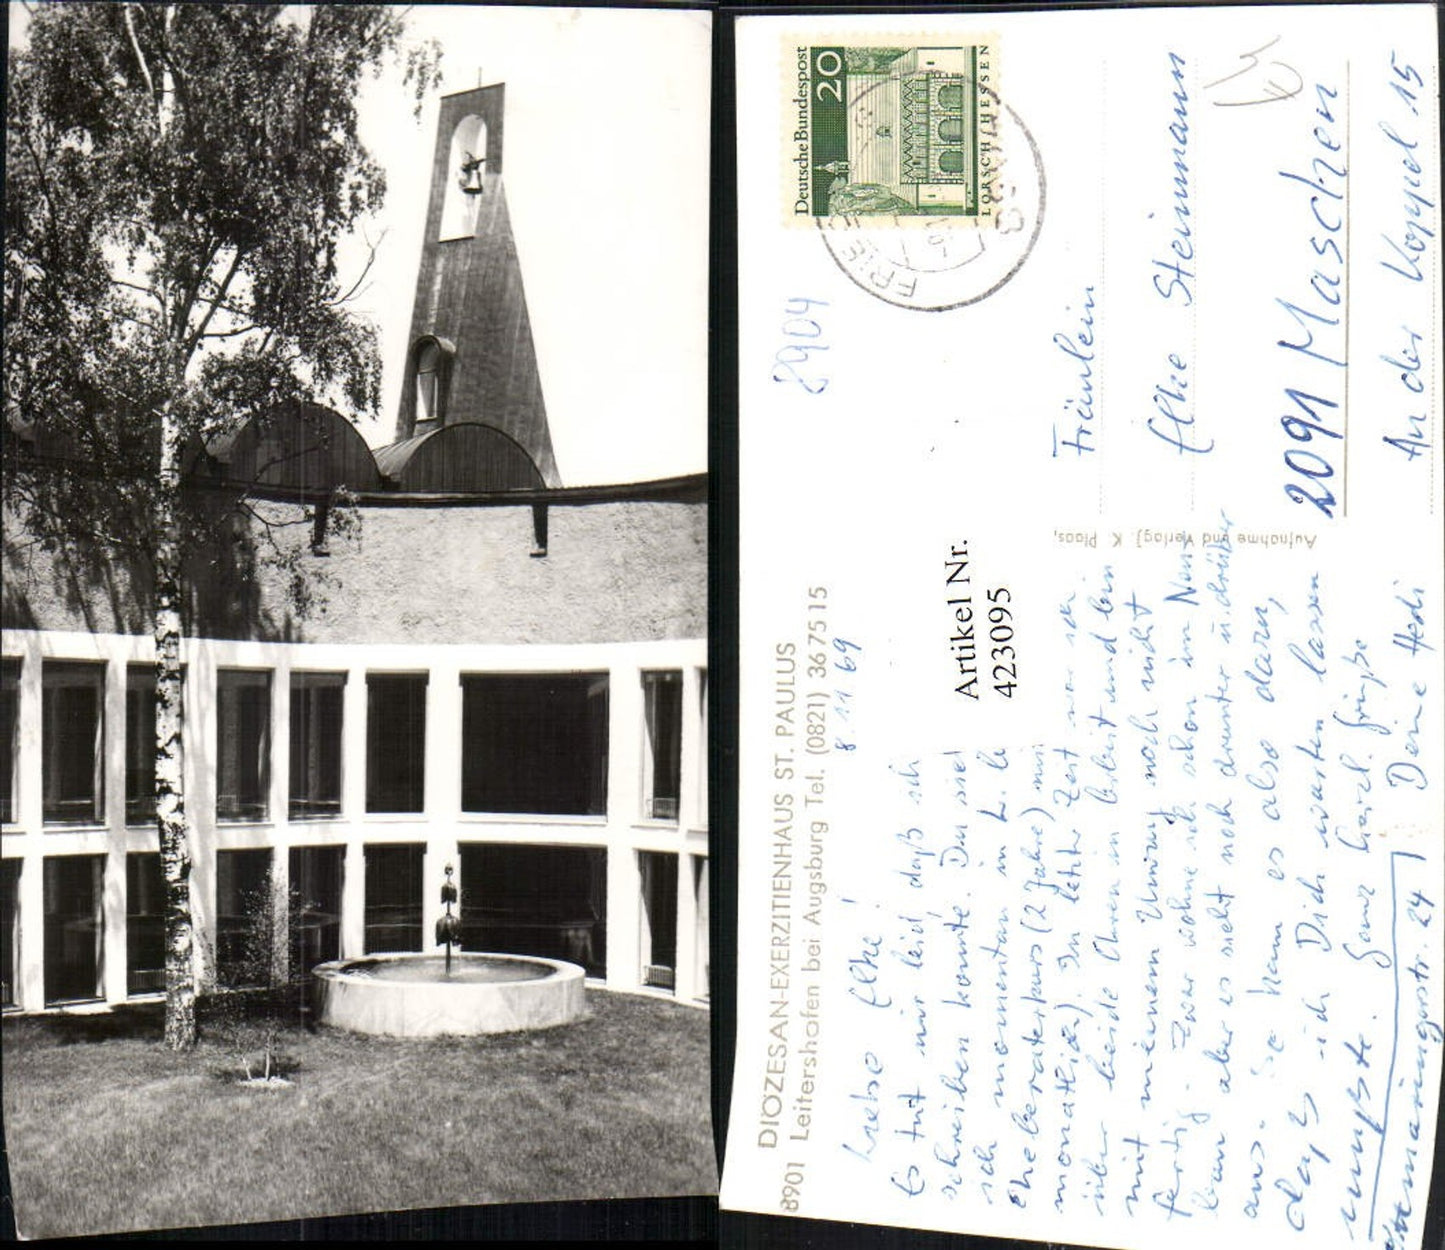 8901 DIÖZESAN-EXERZITIENHAUS ST. PAULUS
Leitershofen bei Augsburg Tel. (0821) 36 75 15
8.11.69
Liebe Elke!
Es tut mir leid, daß ich
schreiben konnte. Du
ich momentan in L.
Eheberaterkurs (2 Jahre)
monatlich). In letzter Zeit war ich
über beide Ohren in Arbeit und bin
mit meinem Umzug noch nicht
fertig. Zwar wohne ich schon im Neu-
bau aber es sieht noch drunter u. drüber
aus. So kam es also dazu,
daß ich Dich warten lassen
mußte. Ganz herzl. Grüße
Deine Hedi
str. 24
Artikel Nr.
423095
Aufnahme und Verlag: K. Plaas,
Deutsche Bundespost
20
LORSCH/HESSEN
8904
Fräulein
Elke Steinmann
2091 Maschen
An der Koppel 15